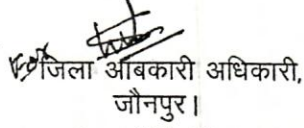 For जिला आबकारी अधिकारी,
जौनपुर।